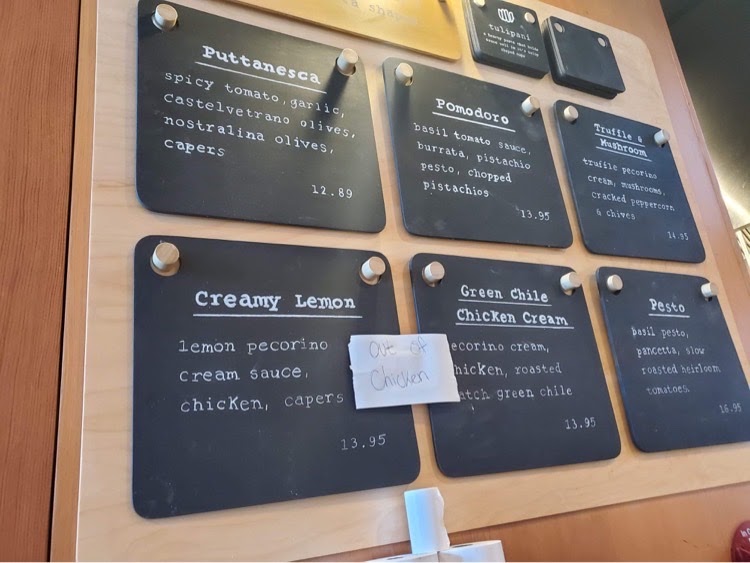 a shape
tulipani
Puttanesca
spicy tomato, garlic,
castelvetrano olives,
nostralina olives,
capers
12.89
Pomodoro
basil tomato sauce,
burrata, pistachio
pesto, chopped
pistachios
13.95
Truffle &
Mushroom
truffle pecorino
cream, mushrooms,
cracked peppercorn
& chives
14.95
Creamy Lemon
lemon pecorino
cream sauce,
chicken, capers
13.95
out of
Chicken
Green Chile
Chicken Cream
ecorino cream,
hicken, roasted
atch green chile
13.95
Pesto
basil pesto,
pancetta, slow
roasted heirloom
tomatoes.
16.95